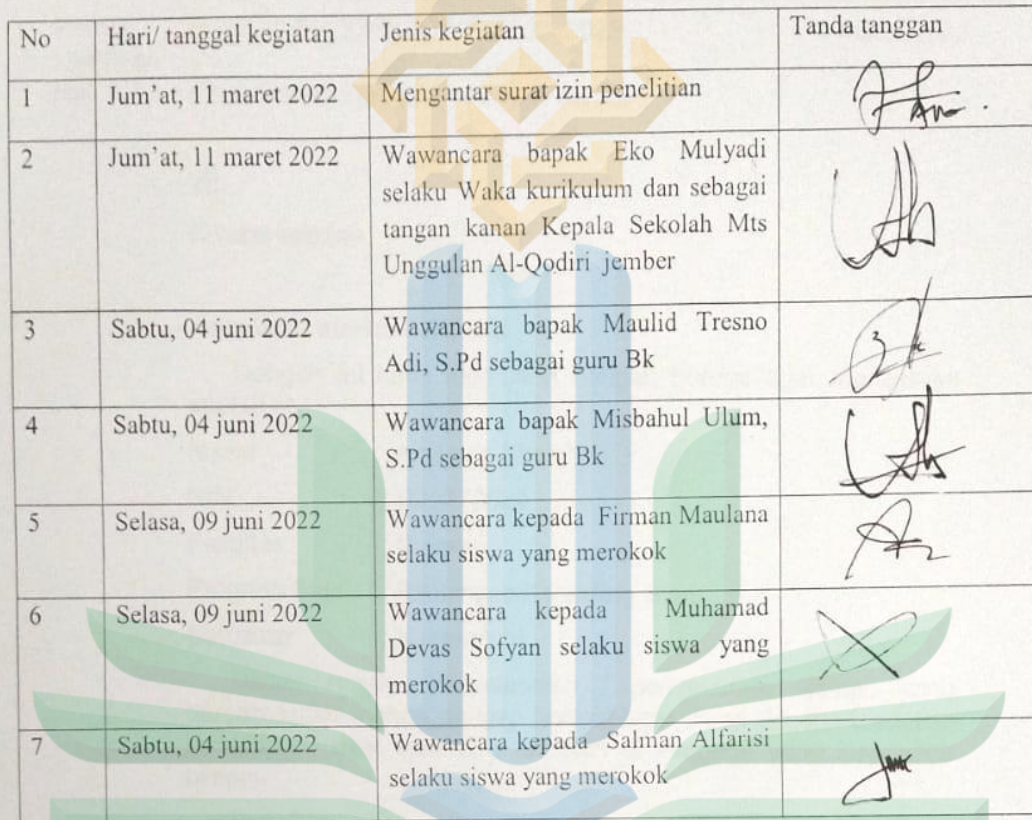 No Hari/ tanggal kegiatan Jenis kegiatan Tanda tanggan
1 Jum'at, 11 maret 2022 Mengantar surat izin penelitian
2 Jum'at, 11 maret 2022 Wawancara bapak Eko Mulyadi
selaku Waka kurikulum dan sebagai
tangan kanan Kepala Sekolah Mts
Unggulan Al-Qodiri jember
3 Sabtu, 04 juni 2022 Wawancara bapak Maulid Tresno
Adi, S.Pd sebagai guru Bk
4 Sabtu, 04 juni 2022 Wawancara bapak Misbahul Ulum,
S.Pd sebagai guru Bk
5 Selasa, 09 juni 2022 Wawancara kepada Firman Maulana
selaku siswa yang merokok
6 Selasa, 09 juni 2022 Wawancara kepada Muhamad
Devas Sofyan selaku siswa yang
merokok
7 Sabtu, 04 juni 2022 Wawancara kepada Salman Alfarisi
selaku siswa yang merokok